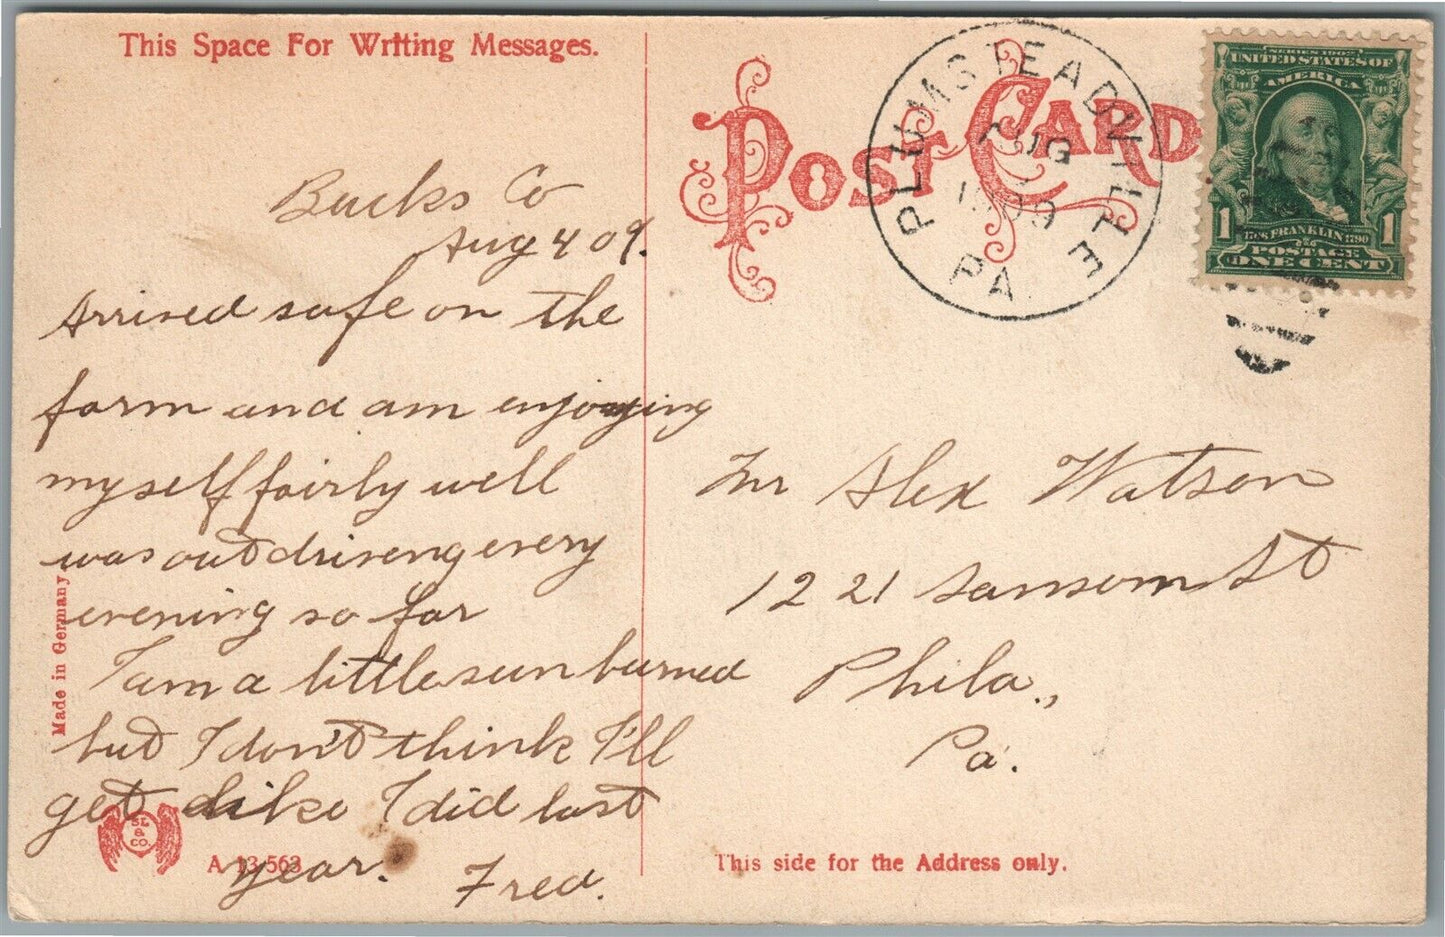 This Space For Writing Messages.
Bucks Co
Aug 4 09.
Arrived safe on the
farm and am enjoying
myself fairly well
was out driveng every
evening so far
I am a little sun burned
but I don't think I'll
get like I did last
year.
Fred.
Made in Germany
SL
&
CO.
A 13 563
POST CARD
PLUMSTEADVILLE
AUG
1909
PA.
SERIES 1902
UNITED STATES OF
AMERICA
1 1
1706 FRANKLIN 1790
POSTAGE
ONE CENT
Mr Alex Watson
1221 Sansom St
Phila.,
Pa.
This side for the Address only.